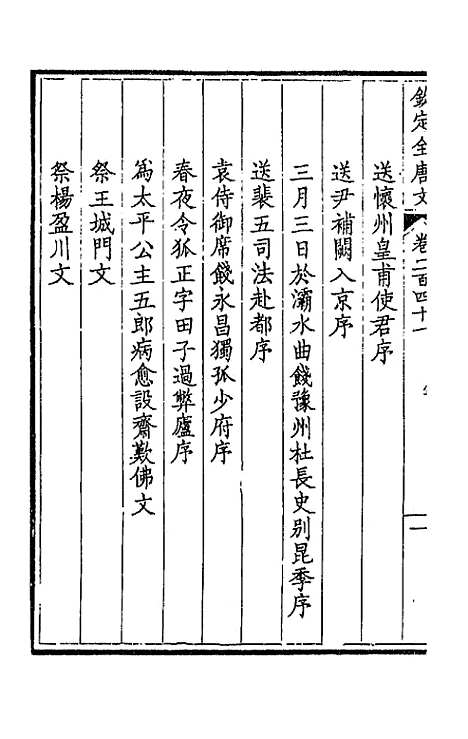 欽定全唐文 卷二百四十一
送懷州皇甫使君序
送尹補闕入京序
三月三日於灞水曲餞豫州杜長史别昆季序
送裴五司法赴都序
袁侍御席餞永昌獨孤少府序
春夜令狐正字田子過弊廬序
爲太平公主五郎病愈設齋歎佛文
祭王城門文
祭楊盈川文